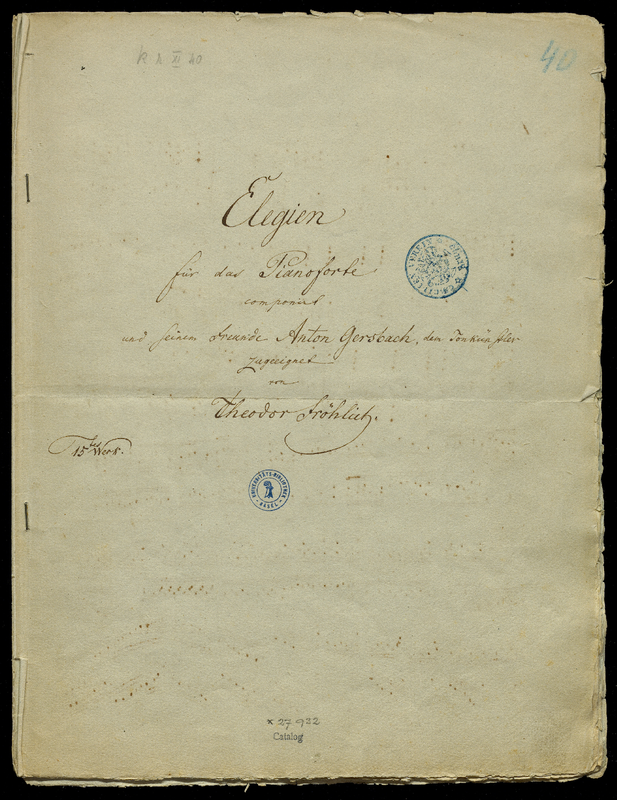 kr XI 40
40
Elegien
für das Pianoforte
componirt
und seinem Freunde Anton Gersbach, dem Tonkünstler
zugeeignet
von
Theodor Fröhlich.
15tes Werk.
UNIVERSITÄTS-BIBLIOTHEK
BASEL
x 27 932
Catalog